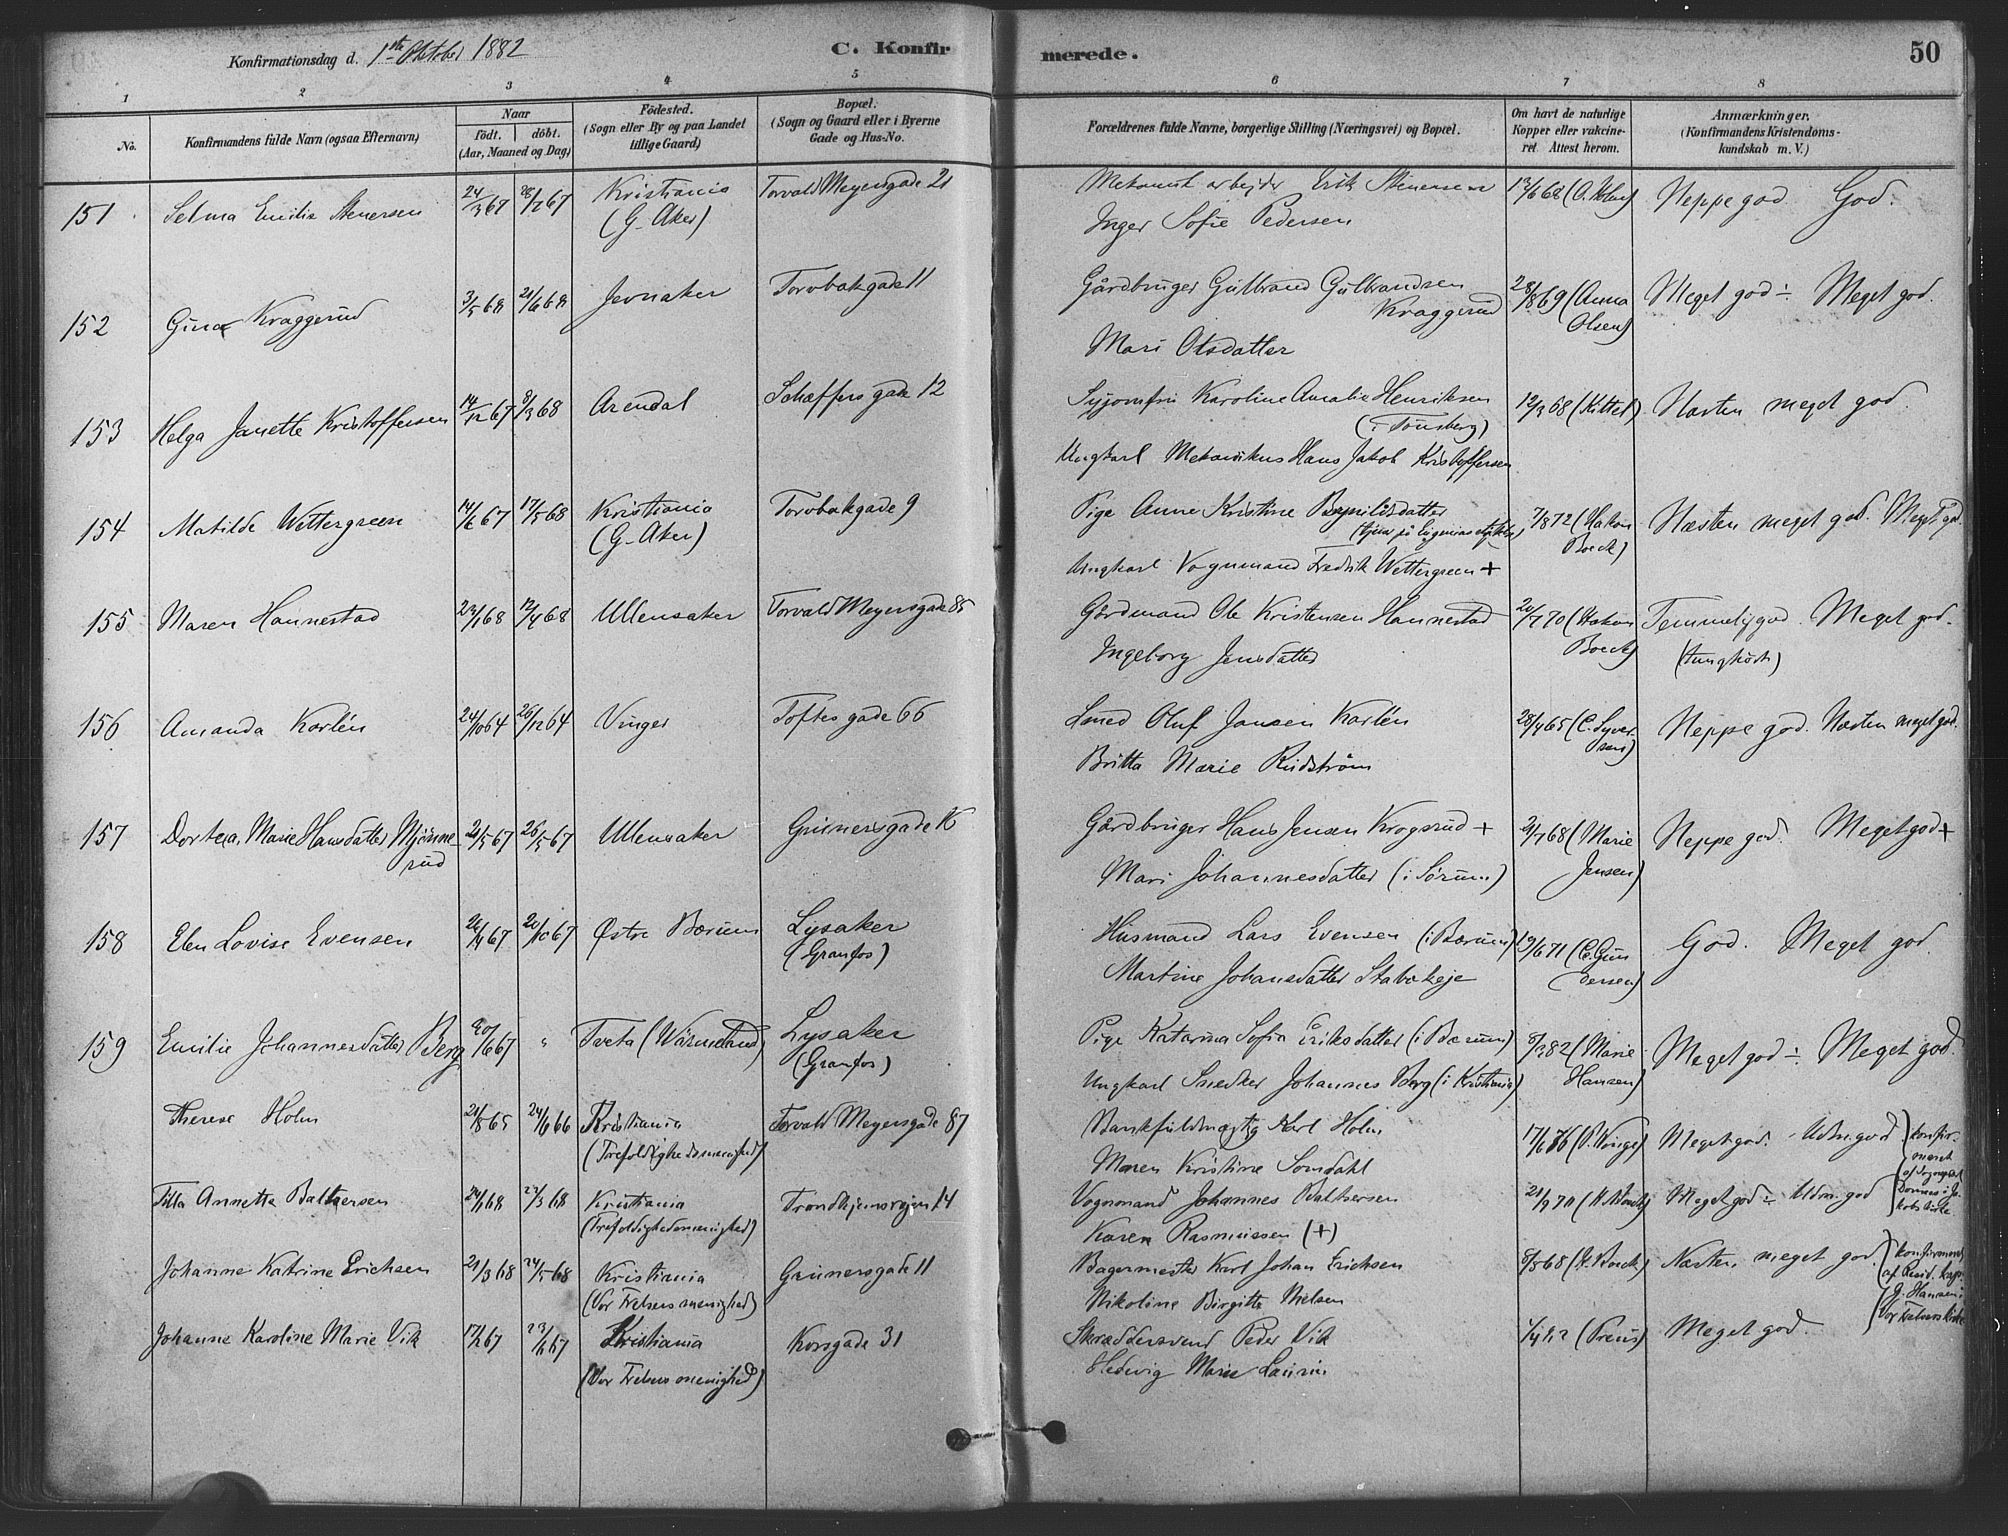 Konfirmationsdag d. 1ste Oktober 1882
C. Konfirmerede.
50
1 2 3 4 5 6 7 8
No.
Konfirmandens fulde Navn (ogsaa Efternavn)
Naar
födt. döbt.
(Aar, Maaned og Dag)
Födested.
(Sogn eller By og paa Landet
tillige Gaard)
Bopæl.
(Sogn og Gaard eller i Byerne
Gade og Hus-No.
Forældrenes fulde Navne, borgerlige Stilling (Næringsvei) og Bopæl.
Om havt de naturlige
Kopper eller vakcine-
ret Attest herom.
Anmærkninger.
(Konfirmandens Kristendoms-
kundskab m. V.)
151 Selma Emilie Stenersen 24/3 67 Kristiania Torvald Meyersgade 21 Mekanisk arbejder Erik Stenersen 13/6 68 Neppe god God.
(G. Aker) Inger Sofie Pedersen
152 Gina Kraggerud 3/5 68 21/6 68 Jevnaker Torvbakgade 11 Gårdbruger Gulbrand Gulbrandsen 28/8 69 (Anna Meget god ÷ Meget god.
Kraggerud Olsen)
Mari Olsdatter
153 Helga Janette Kristoffersen 14/12 67 8/3 68 Arendal Schæffersgade 12 Syjomfru Karoline Amalie Henriksen 12/3 68 (Kittel) Næsten meget god.
(i Tönsberg)
Ungkarl Mekanikus Hans Jakob Kristoffersen
154 Matilde Wettergreen 14/6 67 17/5 68 Kristiania Torvbakgade 9 Pige Anne Kristine 7/8 72 (Hakon Næsten meget god. Meget god.
(G. Aker) Boeck)
Ungkarl Vognmand Fredrik Wettergreen +
155 Maren Hannestad 23/1 68 12/4 68 Ullensaker Torvald Meyersgade 85 Gårdmand Ole Kristensen Hannestad 20/7 70 (Hakon Temmelig god. Meget god.
Ingeborg Jensdatter Boeck) (tunghørt)
156 Amanda Karlén 24/10 64 26/12 64 Vinger Toftesgade 66 Smed Oluf Jansen Karlén 28/9 65 (C. Syver- Neppe god. Næsten meget god.
Britta Marie Rudström sen)
157 Dortea Marie Hansdatter Mjönne- 2/5 67 26/5 67 Ullensaker Grünersgade 16 Gårdbruger Hans Jensen Krogsrud + 21/7 68 (Marie Neppe god. Meget god +
rud Mari Johannesdatter (i Sörum) Jensen)
158 Elen Lovise Evensen 26/9 67 20/10 67 Østre Bærum Lysaker Husmand Lars Evensen (i Bærum) 19/6 71 (C. Gun- God. Meget god
(Granfos) Martine Johansdatter Stabækeje dersen)
159 Emilie Johannesdatter Berg 20/6 67 " Tveta (Wärmeland) Lysaker Pige Katarina Sofia Eriksdatter (i Bærum) 8/3 82 (Marie Meget god ÷ Meget god.
(Granfos) Ungkarl Snedker Johannes Berg (i Kristiania) Hansen)
Therese Holm 21/8 65 24/6 66 Kristiania Torvald Meyersgade 87 Bankfuldmægtig Karl Holm Meget god. Udm. god konfir-
(Trefoldighedsmenighed) Maren Kristine Somdahl meret
Tilla Annette Baltzersen 24/1 68 Kristiania Trondhjemsvejen 14 Vognmand Johannes Baltzersen 21/9 70 Meget god ÷ Udm. god
(Trefoldighedsmenighed) Karen Rasmussen (+) kobs kirke.
Johanne Katrine Erichsen 21/3 68 24/5 68 Kristiania Grünersgade 11 Bagermester Karl Johan Erichsen 8/8 68 (H. Boeck) Næsten meget god. konfirmeret
(Vor Frelsers menighed) Nikoline Birgitte Nielsen af Resid. kap.
J. Hansen i
Vor Frelsers Kirke
Johanne Karoline Marie Vik 17/2 67 23/6 67 Kristiania Korsgade 31 Skræddersvend Peder Vik (Preus) Meget god.
(Vor Frelsers menighed) Hedevig Marie